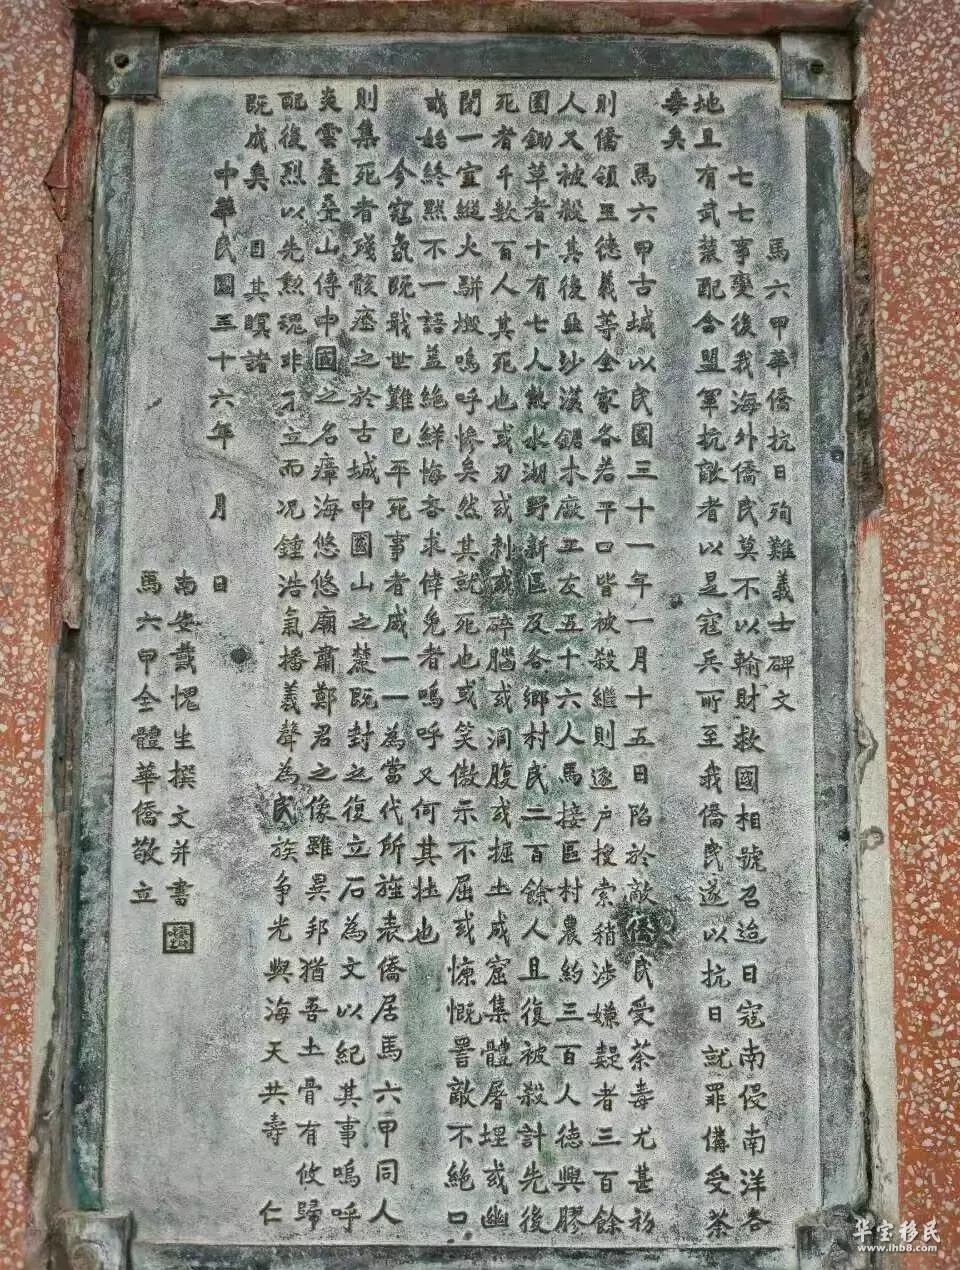 馬六甲華僑抗日殉難義士碑文
七七事變後我海外僑民莫不以輸財救國相號召迨日寇南侵南洋各
地且有武裝配合盟軍抗敵者以是寇兵所至我僑民遂以抗日就罪備受荼
毒矣
馬六甲古城以民國三十一年一月十五日陷於敵僑民受荼毒尤甚初
則僑領王德義等全家各若干口皆被殺繼則逐户搜索稍涉嫌疑者三百餘
人又被殺其後亞沙漢鋸木廠工友五十六人馬接區村農約三百人德興膠
園鋤草者十有七人熱水湖野新區及各鄉村民二百餘人且復被殺計先後
死者千數百人其死也或刃或刺或碎腦或洞腹或掘土成窟集體屠埋或幽
閉一室縱火駢燬嗚呼慘矣然其就死也或笑傲示不屈或慷慨詈敵不絕口
或始終黙不一語蓋絶鮮悔吝求倖免者嗚呼又何其壮也
今寇氛既戢世難已平死事者咸一一為當代所旌表僑居馬六甲同人
則集死者殘骸瘞之於古城中國山之麓既封之復立石為文以紀其事嗚呼
炎雲疊疊山傳中國之名瘴海悠悠廟肅鄭君之像雖異邦猶吾土骨有攸歸
配後烈以先勲魂非孑立而况鍾浩氣播義聲為民族争光與海天共壽仁
既成矣目其瞑諸
中華民國三十六年 月 日
南安戴愧生撰文并書
馬六甲全體華僑敬立
华宝移民
www.ihb8.com